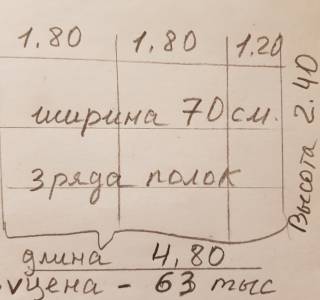 1,80 1,80 1.20
ширина 70 см.
3 ряда полок
Высота 2.40
длина 4,80
цена - 63 тыс